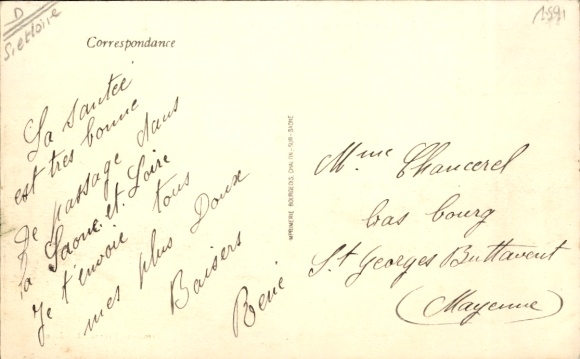 D
S.et Loire
1591
Correspondance
La Santée
est très bonne
De passage dans
la Saone et Loire
Je t'envoie tous
mes plus Doux
Baisers
René
IMPRIMERIE BOURGEOIS, CHALON-SUR-SAONE
Mme Chancerel
bas bourg
St Georges Buttavent
(Mayenne)